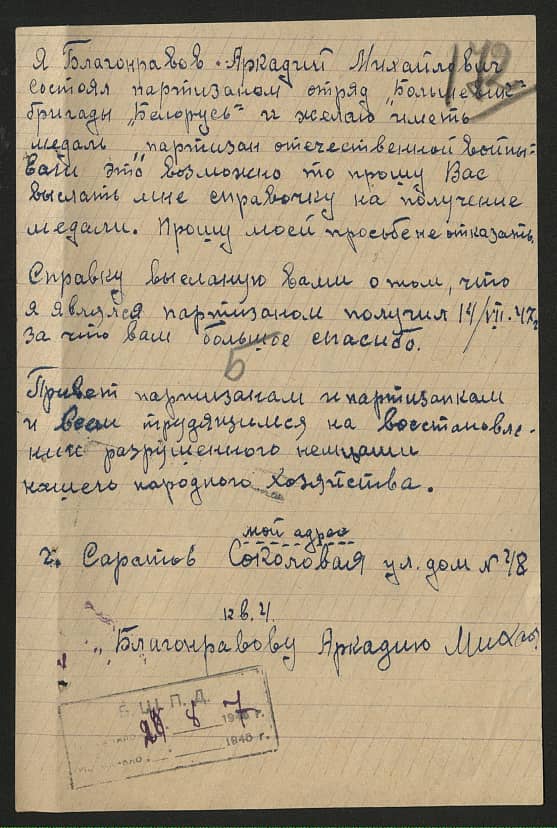 172
Я Благонравов Аркадий Михайлович
состоял партизаном отряд „Большевик"
бригады „Белорусь" и желаю иметь
медаль „партизан отечественной войны"
это возможно то прошу Вас
выслать мне справочку на получение
медали. Прошу моей просьбе не отказать.
Справку высланую вами о том, что
я являлся партизаном получил 14/VII-47г
за что вам большое спасибо.
5
Привет партизанам и партизанкам
и всем трудящимся на восстановле-
нии разрушенного немцами
нашего народного хозяйства.
мой адрес
г. Саратов Соколовая ул. дом №
кв. 4.
Благонравову Аркадию Михай
Б. Ш. П. Д.
28 8 7
194 г.
194 г.